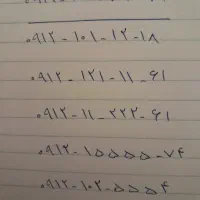 ۰۹۱۲-۱۰۱-۱۲-۱۸
۰۹۱۲-۱۲۱-۱۱-۶۱
۰۹۱۲-۱۱-۲۲۲-۶۱
۰۹۱۲-۱۵۵۵۵-۷۴
۰۹۱۲-۱۰۲-۵۵۵۴